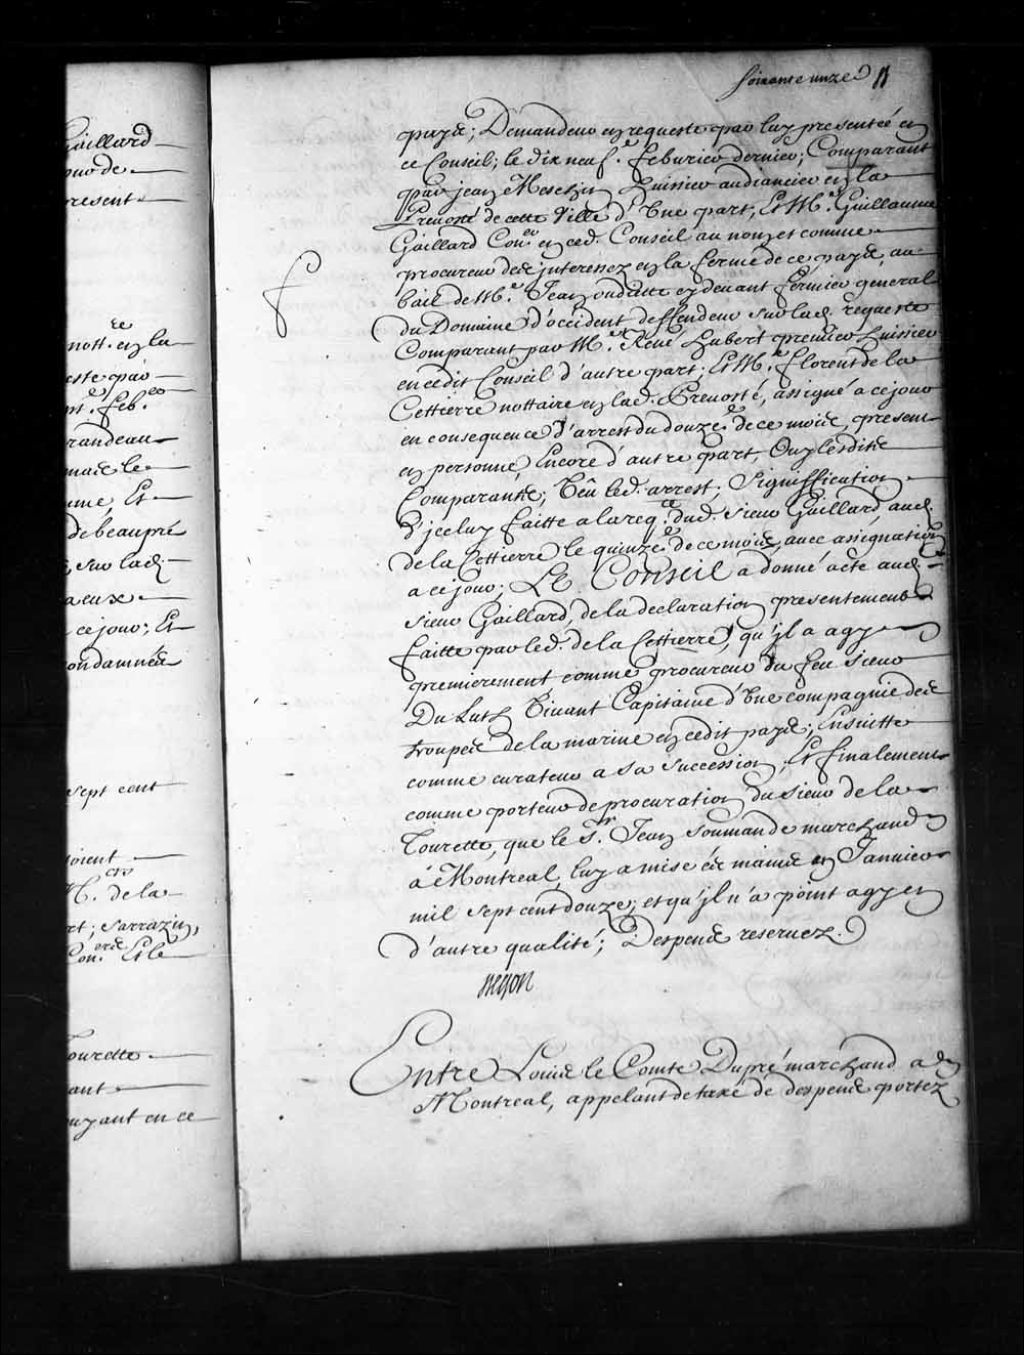 Gaillard
pour de
present
re
nott. en la
este par
nt. feb.
randeau
mais le
ume, Et
de beaupré
, sur lad.
aeux
cejour; Et
ondamnés
sept cent
soient
M. de la
rt; sarrazin,
Con.ers Et le
ourette
ant
uyant en ce
soixante unze 71
pays; Demandeur en requeste par luy presentéé en
ce Conseil; le dix neuf.e feburier dernier; Comparant
par jean Meschin huissier audiancier en la
Prevosté de cette Ville d'Vne part, Et M.e Guillaume
Gaillard Con.er en ced. Conseil au nom et comme
procureur des interessez en la ferme de ce pays, au
bail de M.e Jean oudiette cy devant fermier general
du Domaine d'occident deffendeur sur lad. requeste
Comparant par M.e René hubert premier huissier
en cedit Conseil d'autre part; Et M.e florent de la
Cettierre nottaire en lad. Prevosté, assigné a ce jour
en consequence d'arrest du douze.e de ce mois, present
en personne, Encore d'autre part, Ouy lesdits
Comparants; Veu led. arrest; Signiffication
d'jceluy faitte a la req.te dud. sieur Gaillard, aud.
de la Cettierre le quinze.e de ce mois, avec assignation
a ce jour; LE Conseil a donné acte aud.
sieur Gaillard, de la declaration presentement
faitte par led. de la Cettierre, qu'jl a agy
premierement comme procureur du feu sieur
Du Luth Vivant Capitaine d'Vne compagnie des
troupes de la marine en cedit pays; Ensuitte
comme curateur a sa succession, Et finalement
comme porteur de procuration du sieur de la
Tourette, que le S.r Jean Soumande marchand
a Montreal, luy a mise és mains en Janvier
mil sept cent douze; et qu'jl n'a point agy en
d'autre qualité; Despens reservez.
Begon
Entre Louis le Comte Dupré marchand a
Montreal, appelant de taxe de despens portez